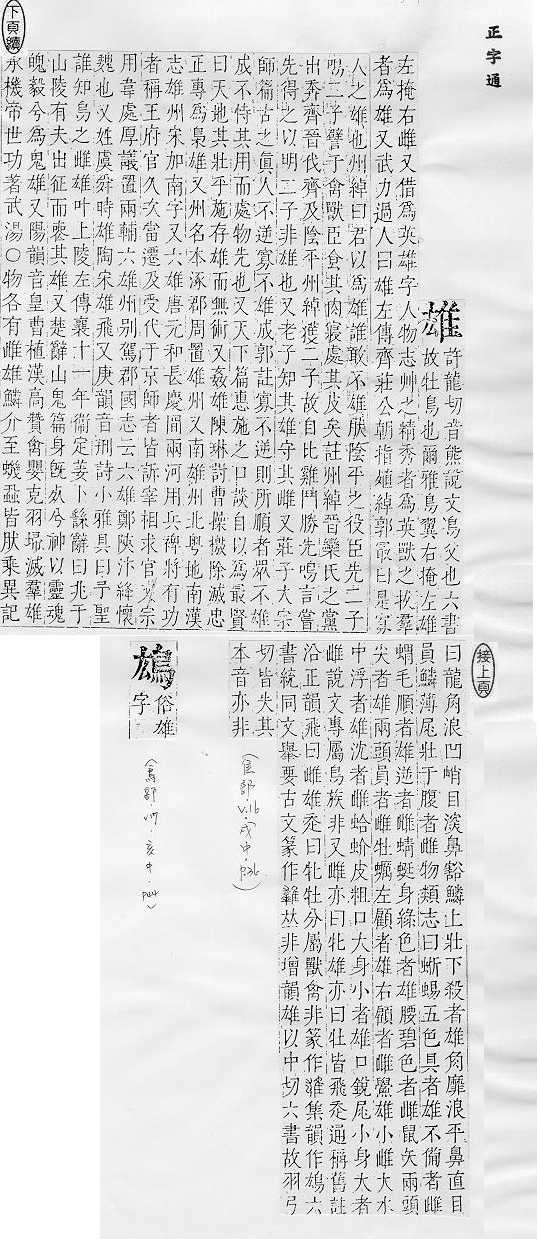 正字通
雄
許龍切音熊說文鳥父也六書
故牡鳥也爾雅鳥翼右掩左雄
左掩右雌又借爲英雄字人物志艸之精秀者爲英獸之拔羣
者爲雄又武力過人曰雄左傳齊莊公朝指殖綽郭最曰是寡
人之雄也州綽曰君以爲雄誰敢不雄肰陰平之役臣先二子
鳴二子譬于禽獸臣食其肉寢處其皮矣註州綽晉欒氏之黨
出奔齊晉伐齊及陰平州綽獲二子故自比雞鬥勝先鳴言嘗
先得之以明二子非雄也又老子知其雄守其雌又莊子大宗
師篇古之眞人不逆寡不雄成郭註寡不逆則所順者眾不雄
成不恃其用而處物先也又天下篇惠施之口談自以爲最賢
曰天地其壯乎施存雄而無術又姦雄陳琳討曹操檄除滅忠
正專爲梟雄又州名本涿郡周置雄州又南雄州北粵地南漢
志雄州宋加南字又六雄唐元和長慶間兩河用兵裨將有功
者補王府官久次當遷及受代于京師者皆訴宰相求官文宗
用韋處厚議置兩輔六雄州別駕郡國志云六雄鄭陝汴絳懷
魏也又姓虞舜時雄陶宋雄飛又庚韻音刑詩小雅具曰予聖
誰知烏之雌雄叶上陵左傳襄十一年衞定姜卜繇辭曰兆于
山陵有夫出征而喪其雄又楚辭山鬼篇身旣死兮神以靈魂
魄毅兮爲鬼雄又陽韻音皇曹植漢高贊禽嬰克羽埽滅羣雄
承機帝世功著武湯〇物各有雌雄鱗介至蟣蝨皆肰乘異記
下頁續
接上頁
曰龍角浪凹峭目深鼻豁鱗上壯下殺者雄角靡浪平鼻直目
員鱗薄尾壯于腹者雌物類志曰蜥蜴五色具者雄不備者雌
蝟毛順者雄逆者雌蜻蜓身綠色者雄腰碧色者雌鼠矢兩頭
尖者雄兩頭員者雌牡蠣左顧者雄右顧者雌鱟雄小雌大水
中浮者雄沈者雌蛤蚧皮粗口大身小者雄口銳尾小身大者
雌說文專屬鳥族非又雌亦曰牝雄亦曰牡皆飛走通稱舊註
沿正韻飛曰雌雄走曰牝牡分屬獸禽非篆作䧺集韻作鴆六
書統同文舉要古文篆作雄丛非增韻雄以中切六書故羽弓
切皆失其
本音亦非
(隹部 v.16.戌中.p26)
鴆
俗雄
字
(鳥部.v17.亥中.p24)